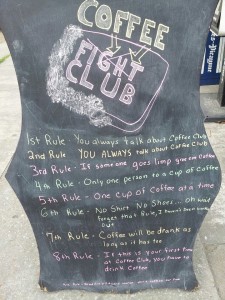 COFFEE
FIGHT
CLUB
1st Rule - You always talk about Coffee Club
2nd Rule - YOU ALWAYS talk about Coffee Club
3rd Rule - If someone goes limp give em Coffee
4th Rule - Only one person to a cup of Coffee
5th Rule - One cup of Coffee at a time
6th Rule - No Shirt No Shoes... oh wait
forget that Rule, I haven't been
out
7th Rule - Coffee will be drank as
long as it has too
8th Rule - If this is your first time
at Coffee Club, you have to
drink Coffee